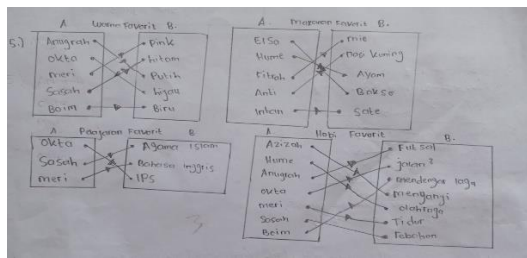 A. Warna Favorit B.
5.)
Anugrah
okta
meri
Sasah
Boim
Pink
hitam
Putih
hijau
Biru
A. Makanan Favorit B.
Elsa
Hume
Fitrah
Anti
Intan
mie
nasi kuning
Ayam
Bakso
Sate
A. Pelajaran Favorit B
okta
Sasah
meri
Agama Islam
Bahasa Inggris
IPS
A. Hobi Favorit B.
Azizah
Hume
Anugrah
okta
meri
Sasah
Boim
Futsal
jalan²
mendengar lagu
menyanyi
olahraga
Tidur
Rebahan